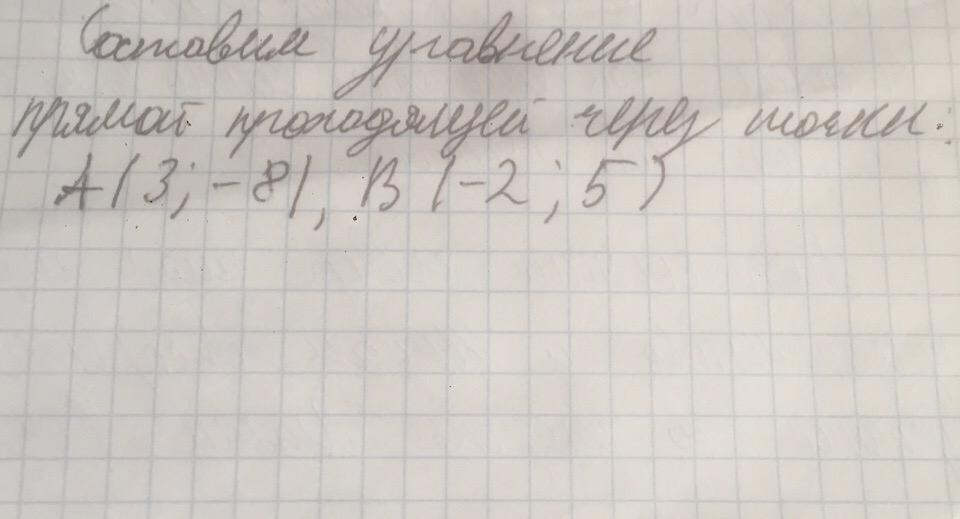 Составим уравнение
прямой проходящей через точки:
A(3; -8), B (-2; 5)